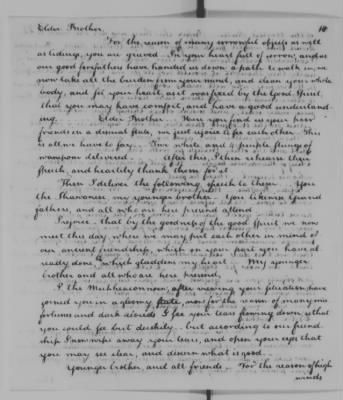 Elder Brother, 10
For the reason of many sorrowful objects as well
as tidings, you are grieved. In your heart full of sorrow, and as
our good forefathers have handed us down a path to walk in,
now take all the burden from your mind, and clear your whole
body, and fix your heart, as it was fixed by the Good Spirit,
that you may have comfort, and have a good understand-
ing. Elder Brother. Here you find us your poor
friends in a dismal state, we just rejoice to see each other. This
is all we have to say. Two white and 4 purple strings of
wampom delivered. After this, I then rehearse their
speech, and heartily thank them for it.
Then I deliver the following speech to them. You
the Shawanese my younger brother. You likewise Grand
fathers, and all who are here friends attend.
I rejoice that by the goodness of the good Spirit we now
meet this day where we may put each other in mind of
our ancient friendship, which on your part you have al
ready done, which gladdens my heart. My younger
brother and all who are here present,
I the Muhheaconnow, after viewing your situation, have
found you in a gloomy state, now for the reason of many mis
fortunes and dark clouds I see your tears flowing down, so that
you could see but duskily. but according to our friend
ship I now wipe away your tears, and open your eyes that
you may see clear, and discern what is good.
Younger brother, and all friends. For the reason of high
winds